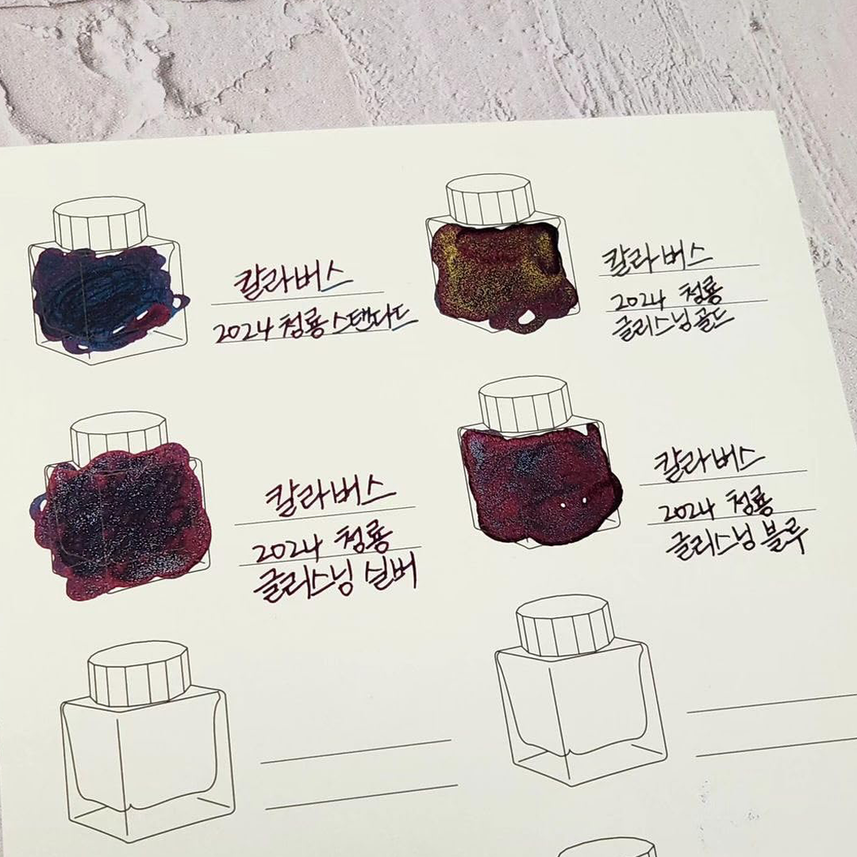 칼라버스
2024 청룡 스탠다드
칼라버스
2024 청룡
글리스닝 골드
칼라버스
2024 청룡
글리스닝 실버
칼라버스
2024 청룡
글리스닝 블루